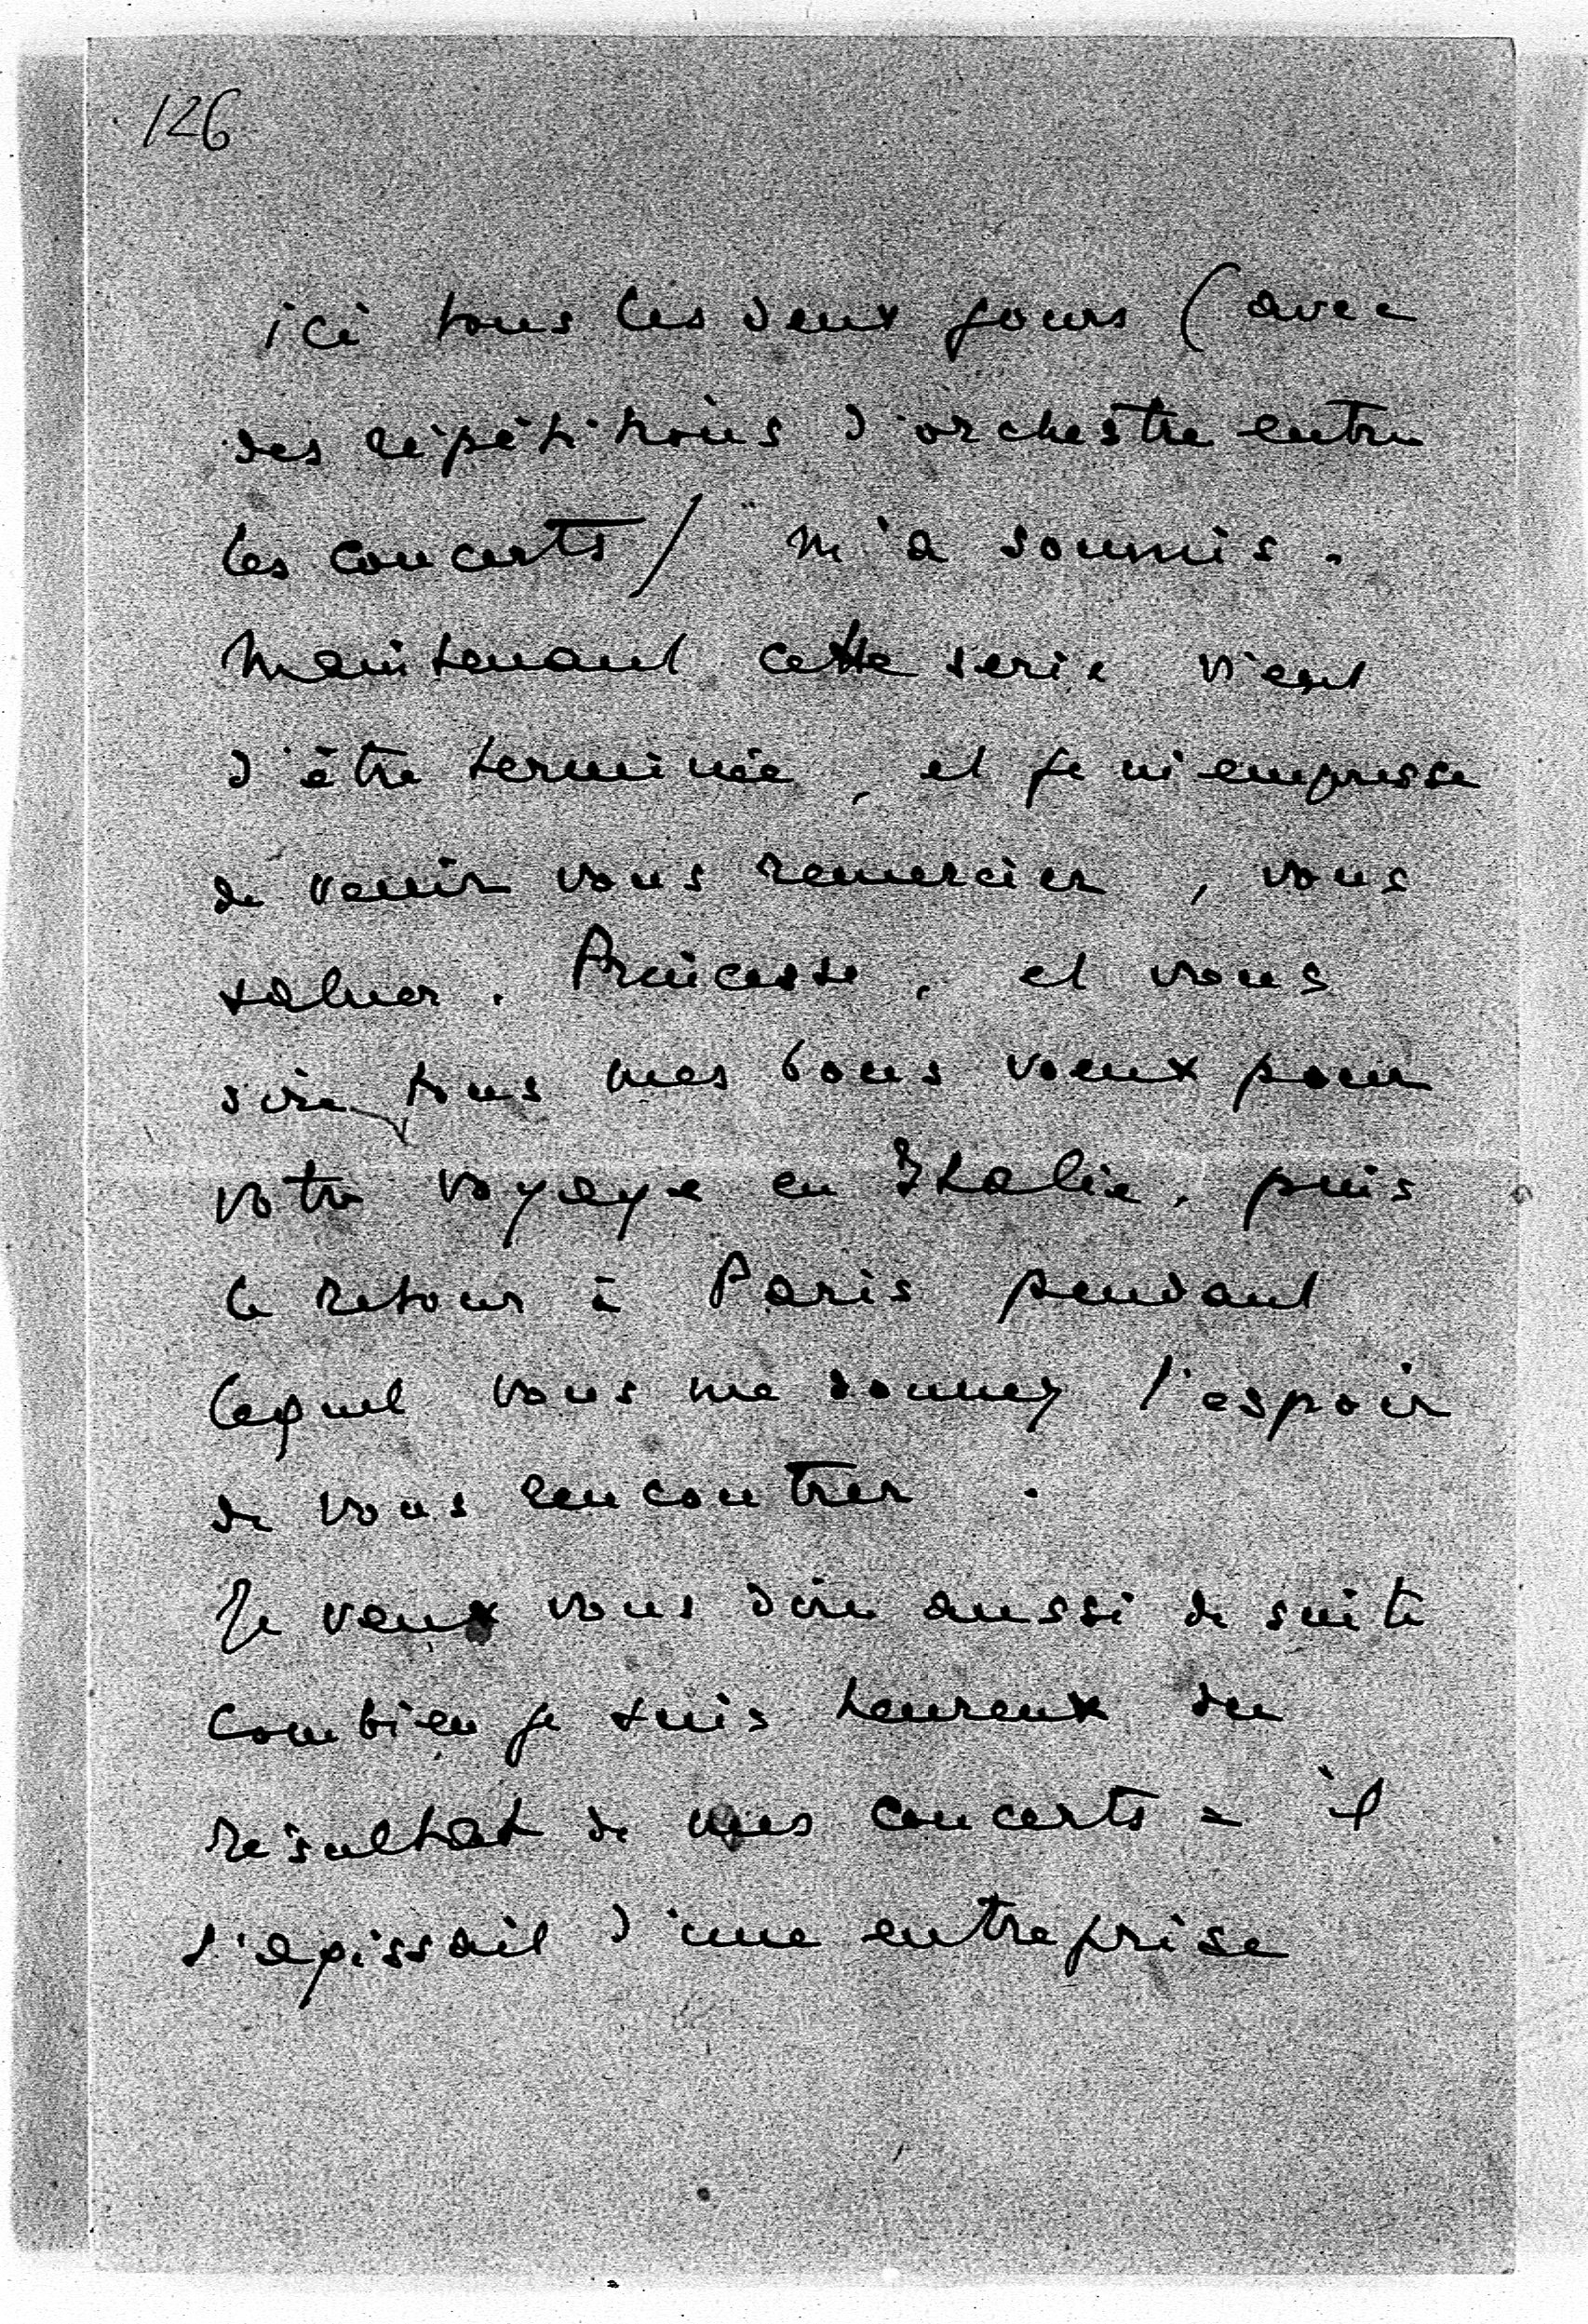 126
ici tous les deux jours (avec
des répétitions d'orchestre entre
les concerts/ m'a soumis.
Maintenant cette serie vient
d'être terminée, et je m'empresse
de venir vous remercier, vous
saluer, Princesse, et vous
dire tous mes bons voeux pour
votre voyage en Italie, puis
le retour à Paris pendant
lequel vous me donnez l'espoir
de vous rencontrer.
Je veux vous dire aussi de suite
combien je suis heureux du
résultat de mes concerts = il
s'agissait d'une entreprise